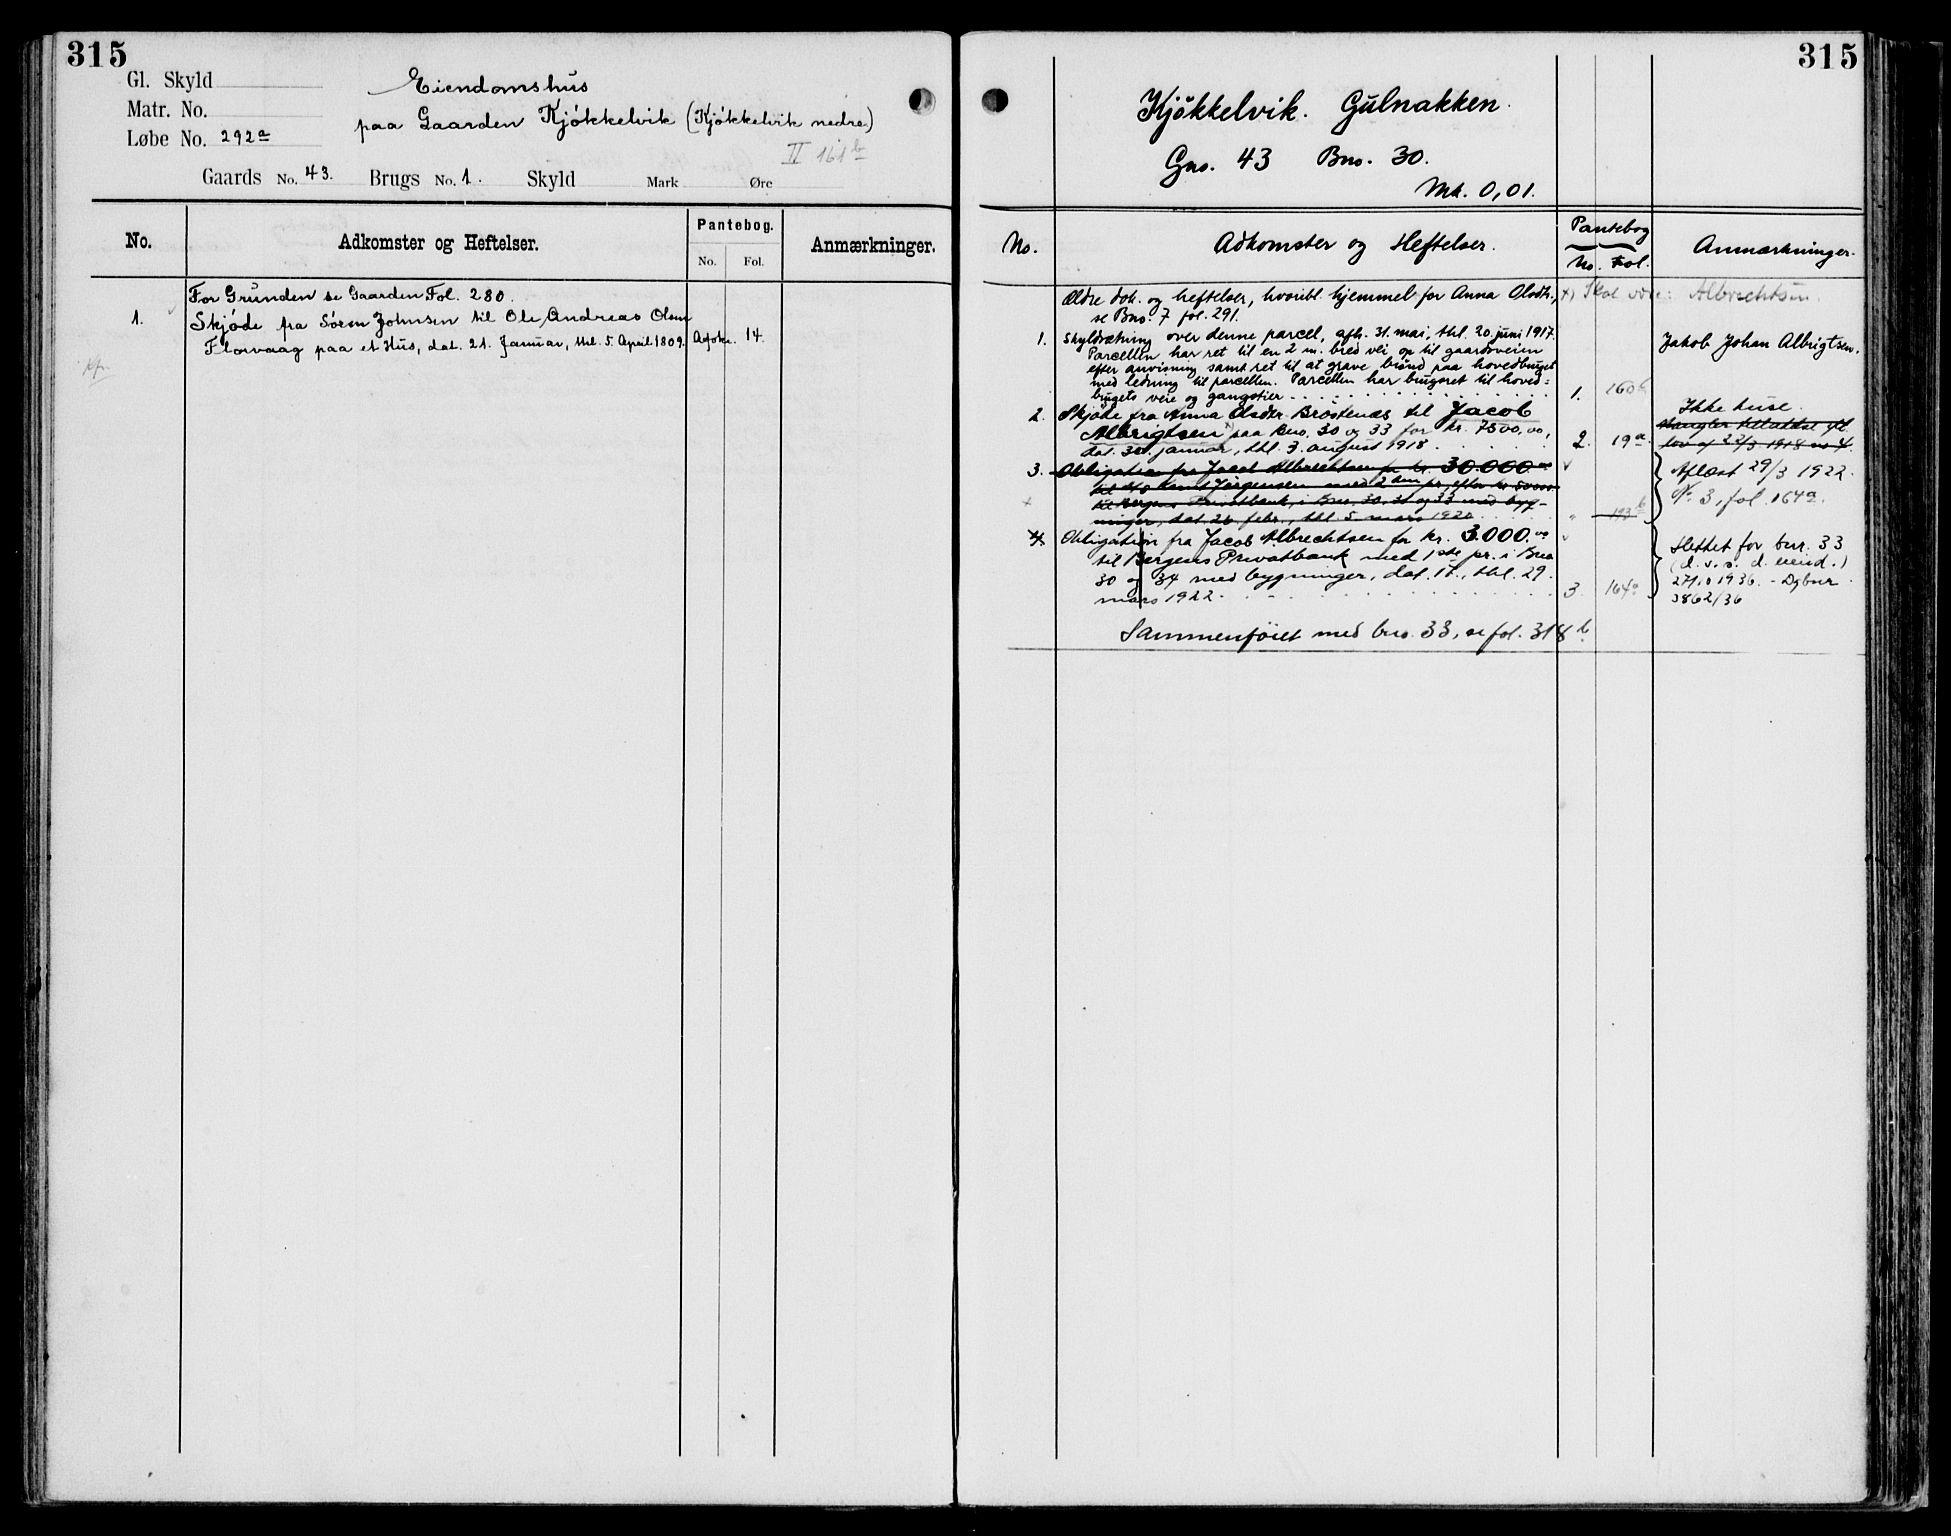 315
Gl. Skyld
Matr. No.
Løbe No. 292a
Eiendomshus
paa Gaarden Kjøkkelvik (Kjøkkelvik nedre)
II 161b
Gaards No. 43. Brugs No. 1. Skyld Mark Øre
No. Adkomster og Heftelser. Pantebog. Anmærkninger.
No. Fol.
For Grunden se Gaarden Fol. 280.
1. Skjøde fra Søren Johnsen til Ole Andreas Olsen
Florvaag paa et Hus, dat. 21. Januar, thl. 5. April 1809. 14.
315
Kjøkkelvik. Gulnakken.
Gno. 43 Bno. 30.
Mk. 0,01.
No. Adkomster og Heftelser. Pantebog Anmærkninger.
No. Fol.
Ældre dok. og heftelser, hvoribl. hjemmel for Anna Olsdtr., x) Skal være: Albrechtsen.
se Bno. 7 fol. 291.
1. Skyldsætning over denne parcel, afh. 31. mai, thl. 20. juni 1917.
Parcellen har ret til en 2 m. bred vei op til gaardsveien
efter anvisning samt ret til at grave brønd paa hovedbruget
med ledning til parcellen. Parcellen har brugsret til hoved=
brugets veie og gangstier 1. 160b
Jakob Johan Albrigtsen.
2. Skjøde fra Anna Olsdtr. Brostenes til Jacob
Albrigtsen x) paa Bno. 30 og 33 for kr. 7500,00,
dat. 30. januar, thl. 3. august 1918. 2. 19a.
Ikke huse.
Mangler tilladelse gl.
lov af 22/3 1918 no 4.
3. Obligation fra Jacob Albrechtsen for kr. 30.000.00
til Jørgensen med 2den pr. efter kr. 50000
til Bergens Privatbank, i Bno. 30, 31 og 33 med byg-
ninger, dat. 26 febr., thl. 5. mars 1920 " 193b
Aflæst 29/3 1922.
P. 3, fol. 164a.
4. Obligation fra Jacob Albrechtsen for kr. 3.000.00
til Bergens Privatbank med 1ste pr. i Bno
30 og 34 med bygninger, dat. 17., thl. 29.
mars 1922 3. 164a
Slettet for bnr. 33
(d. v. s. d. eiend.)
27/10 1936. - Dgbnr
3862/36
Sammenføiet med bno. 33, se fol. 318b